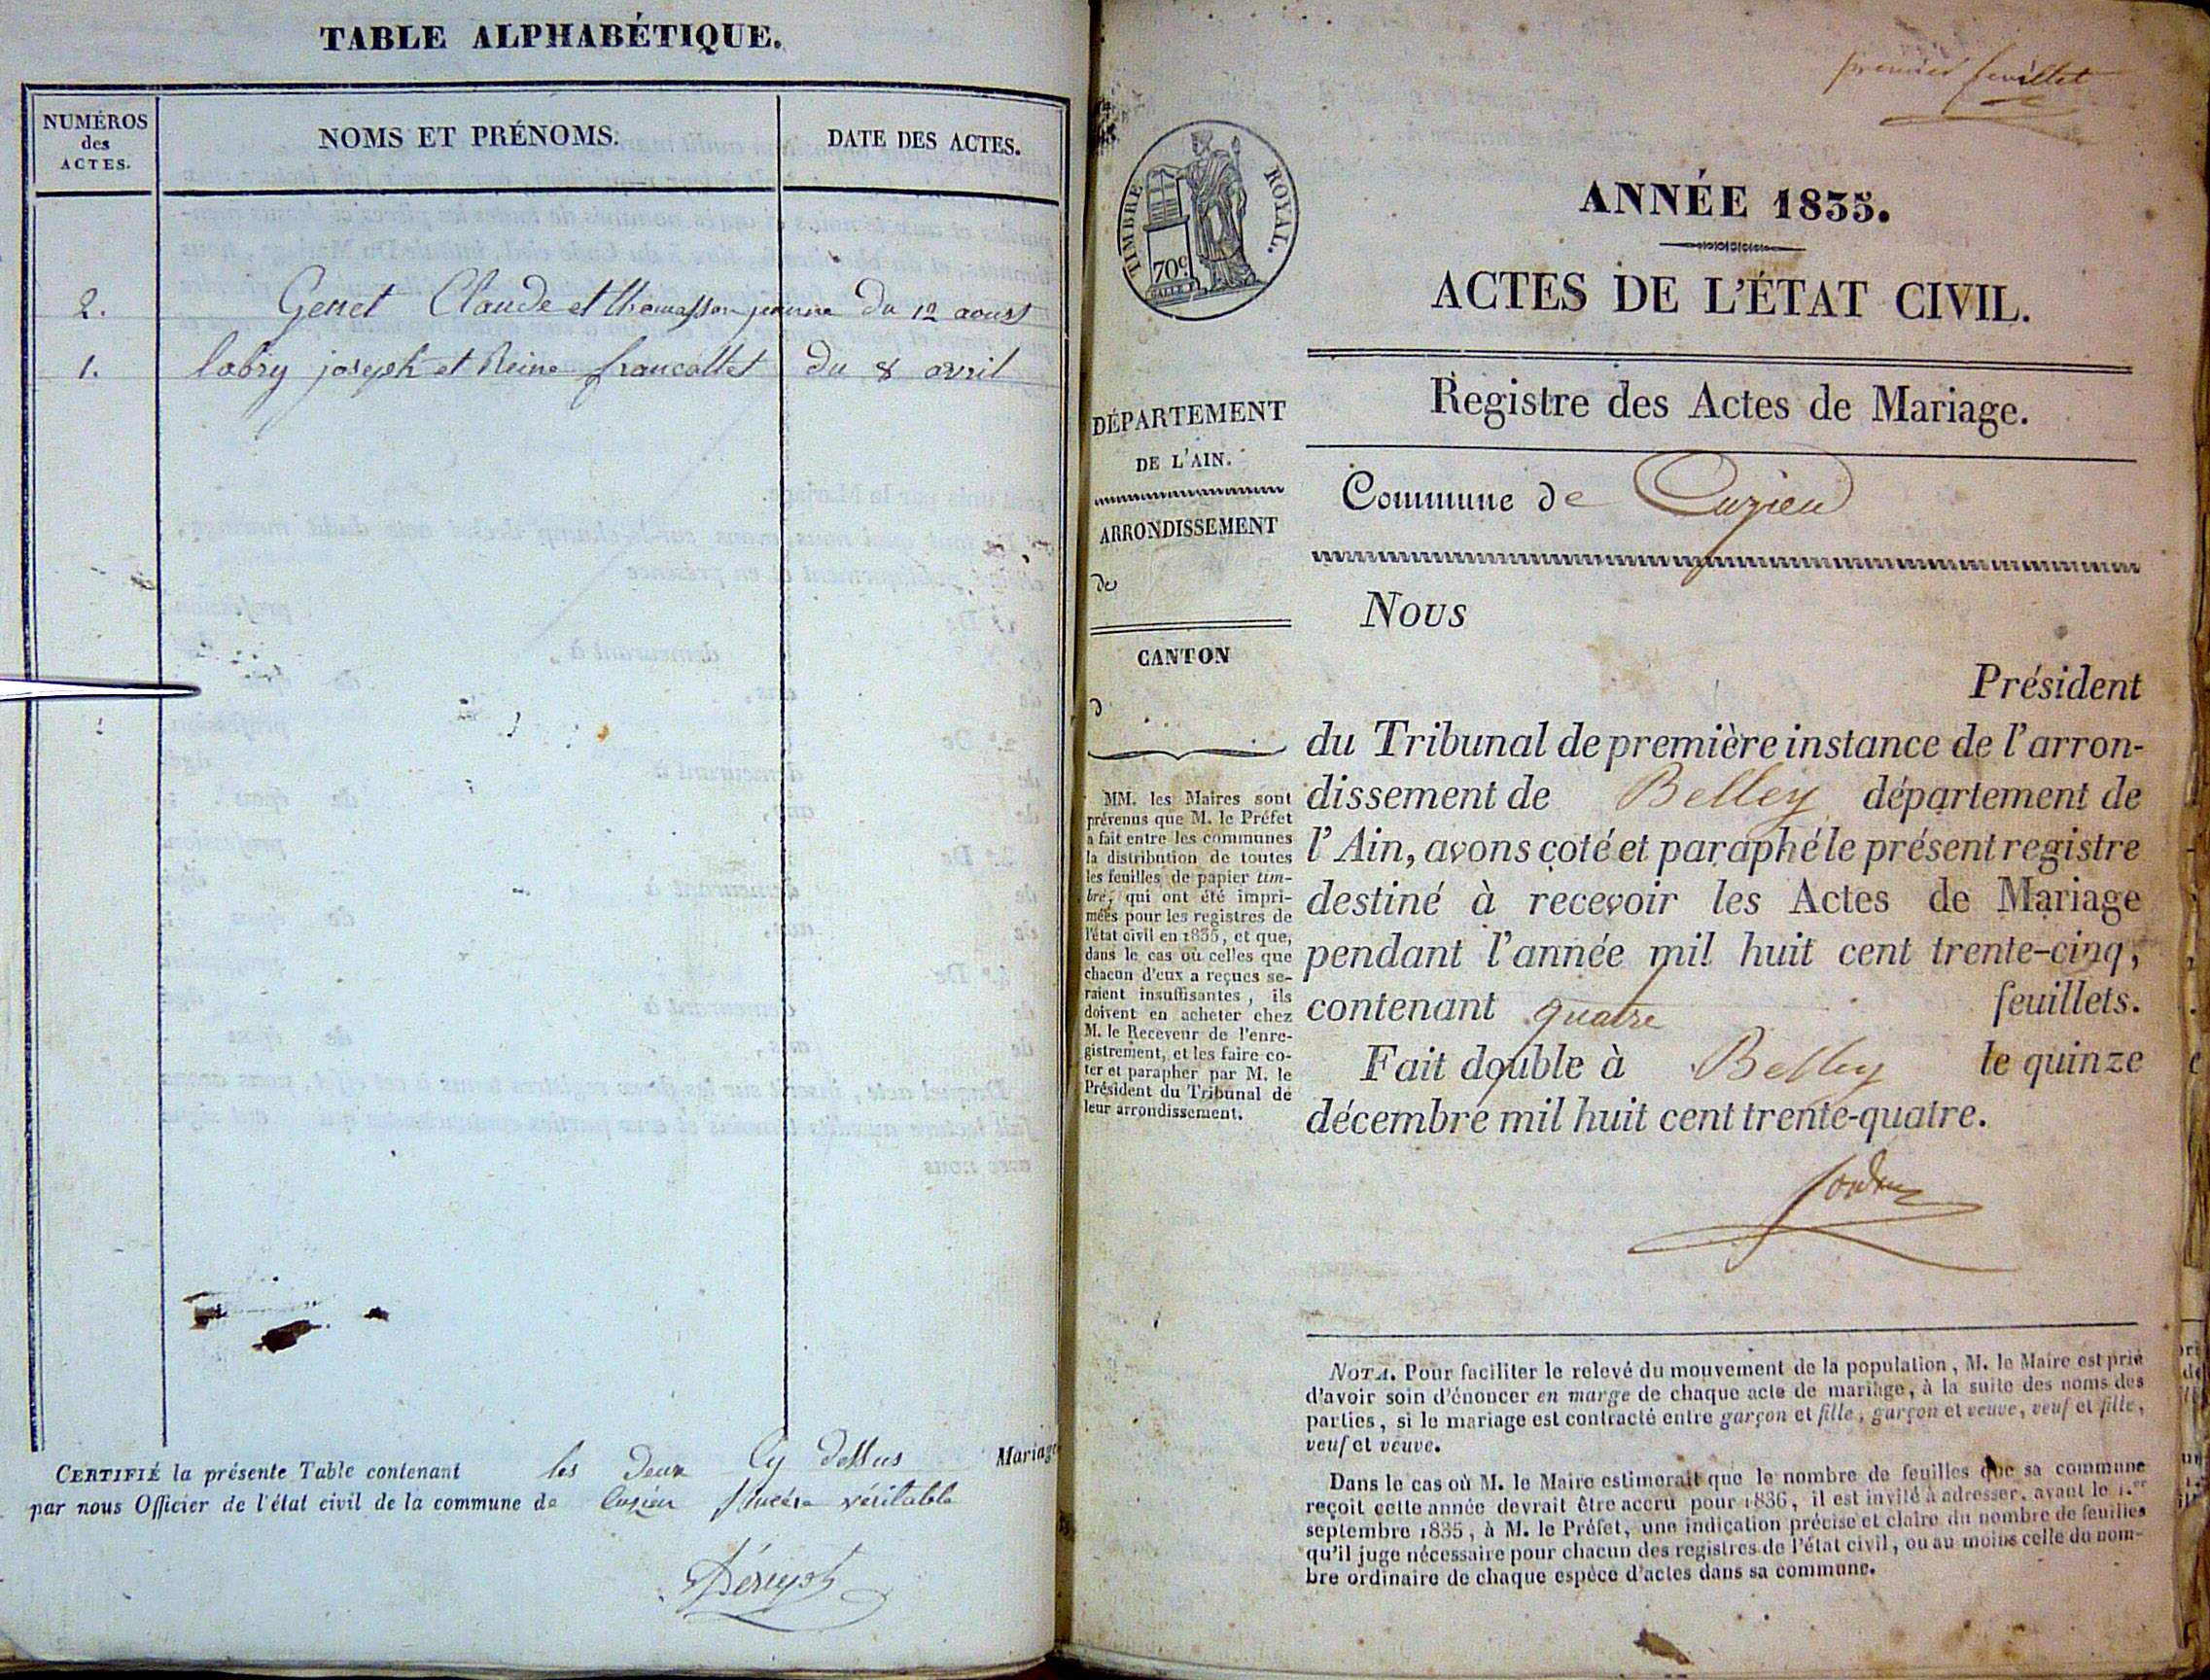 TABLE ALPHABÉTIQUE.
NUMÉROS
des
ACTES.
NOMS ET PRÉNOMS.
DATE DES ACTES.
2. Genet Claude et thomasson jeanne du 12 aoust
1. labry joseph et Reine francallet du 8 avril
CERTIFIÉ la présente Table contenant les deux Cy dessus Mariage
par nous Officier de l'état civil de la commune de Cuzieu sincére véritable
premier feuillet
TIMBRE ROYAL.
70c
ANNÉE 1835.
ACTES DE L'ÉTAT CIVIL.
Registre des Actes de Mariage.
Commune de Cuzieu
DÉPARTEMENT
DE L'AIN.
ARRONDISSEMENT
de
CANTON
d
MM. les Maires sont
prévenus que M. le Préfet
a fait entre les communes
la distribution de toutes
les feuilles de papier tim-
bré, qui ont été impri-
mées pour les registres de
l'état civil en 1835, et que,
dans le cas où celles que
chacun d'eux a reçues se-
raient insuffisantes, ils
doivent en acheter chez
M. le Receveur de l'enre-
gistrement, et les faire co-
ter et parapher par M. le
Président du Tribunal de
leur arrondissement.
Nous
Président
du Tribunal de première instance de l'arron-
dissement de Belley département de
l'Ain, avons coté et paraphé le présent registre
destiné à recevoir les Actes de Mariage
pendant l'année mil huit cent trente-cinq,
contenant quatre feuillets.
Fait double à Belley le quinze
décembre mil huit cent trente-quatre.
NOTA. Pour faciliter le relevé du mouvement de la population, M. le Maire est prié
d'avoir soin d'énoncer en marge de chaque acte de mariage, à la suite des noms des
parties, si le mariage est contracté entre garçon et fille, garçon et veuve, veuf et fille,
veuf et veuve.
Dans le cas où M. le Maire estimerait que le nombre de feuilles que sa commune
reçoit cette année devrait être accru pour 1836, il est invité à adresser, avant le 1.er
septembre 1835, à M. le Préfet, une indication précise et claire du nombre de feuilles
qu'il juge nécessaire pour chacun des registres de l'état civil, ou au moins celle du nom-
bre ordinaire de chaque espèce d'actes dans sa commune.